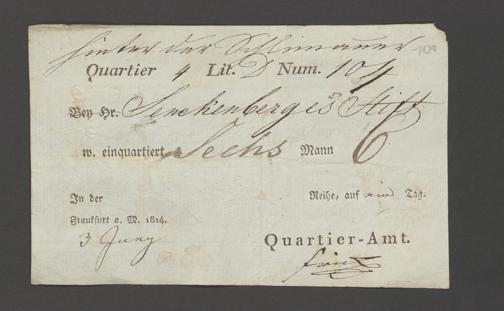 hinter der Schlimauer
104
Quartier 4 Lit. D Num. 104
Bey Hr. Senckenberges Stift
w. einquartiert Sechs Mann 6
In der Reihe, auf ein Tag.
Frankfurt a. M. 1814.
3 Juny
Quartier-Amt.